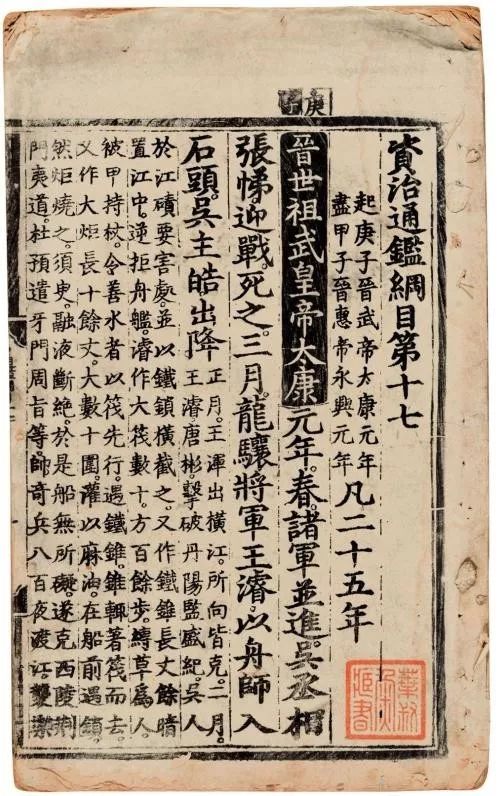 庚子
資治通鑑綱目第十七
起庚子晉武帝太康元年
盡甲子晉惠帝永興元年
凡二十五年
晉世祖武皇帝太康元年。春。諸軍並進。吳丞相
張悌。迎戰。死之。三月。龍驤將軍王濬。以舟師入
石頭。吳主皓出降
正月。王渾出橫江。所向皆克。二月。
王濬唐彬。擊破丹陽監盛紀。吳人
於江磧要害處。並以鐵鎖橫截之。又作鐵錐長丈餘暗
置江中。逆拒舟艦。濬作大筏數十。方百餘步。縛草爲人
被甲持杖。令善水者以筏先行。遇鐵錐。錐輒著筏而去。
又作大炬長十餘丈。大數十圍。灌以麻油。在船前遇鎖。
然炬燒之。須臾。融液斷絕。於是船無所礙。遂克西陵荊
門夷道。杜預遣牙門周旨等。帥奇兵八百夜渡江。襲樂